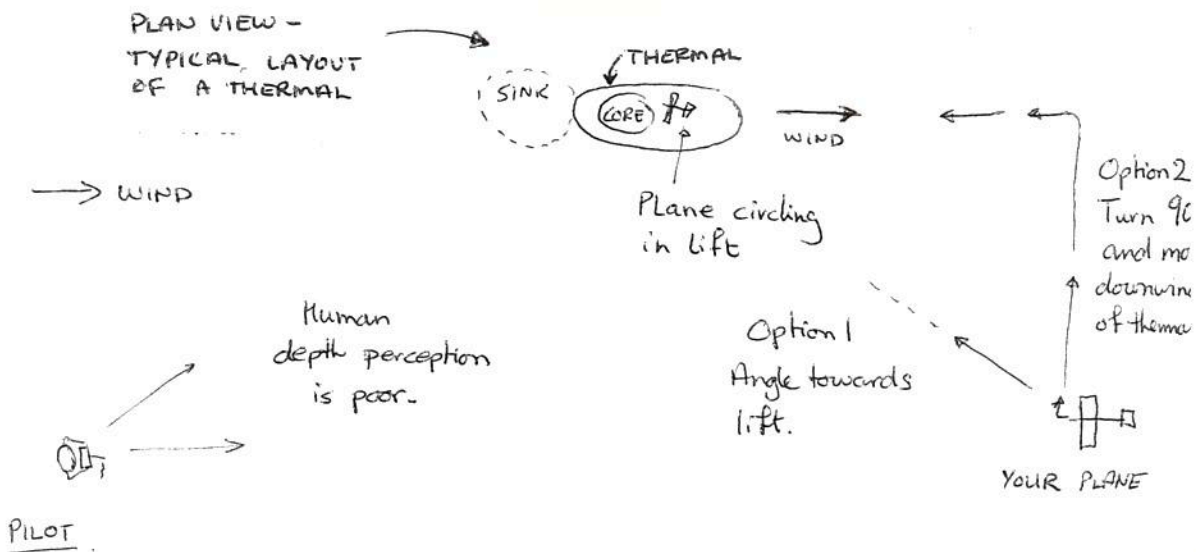 PLAN VIEW -
TYPICAL LAYOUT
OF A THERMAL
THERMAL
SINK
CORE
WIND
WIND
Plane circling
in lift
Option 2
Turn 90
and mo
downwind
of therma
Human
depth perception
is poor.
Option 1
Angle towards
lift.
YOUR PLANE
PILOT